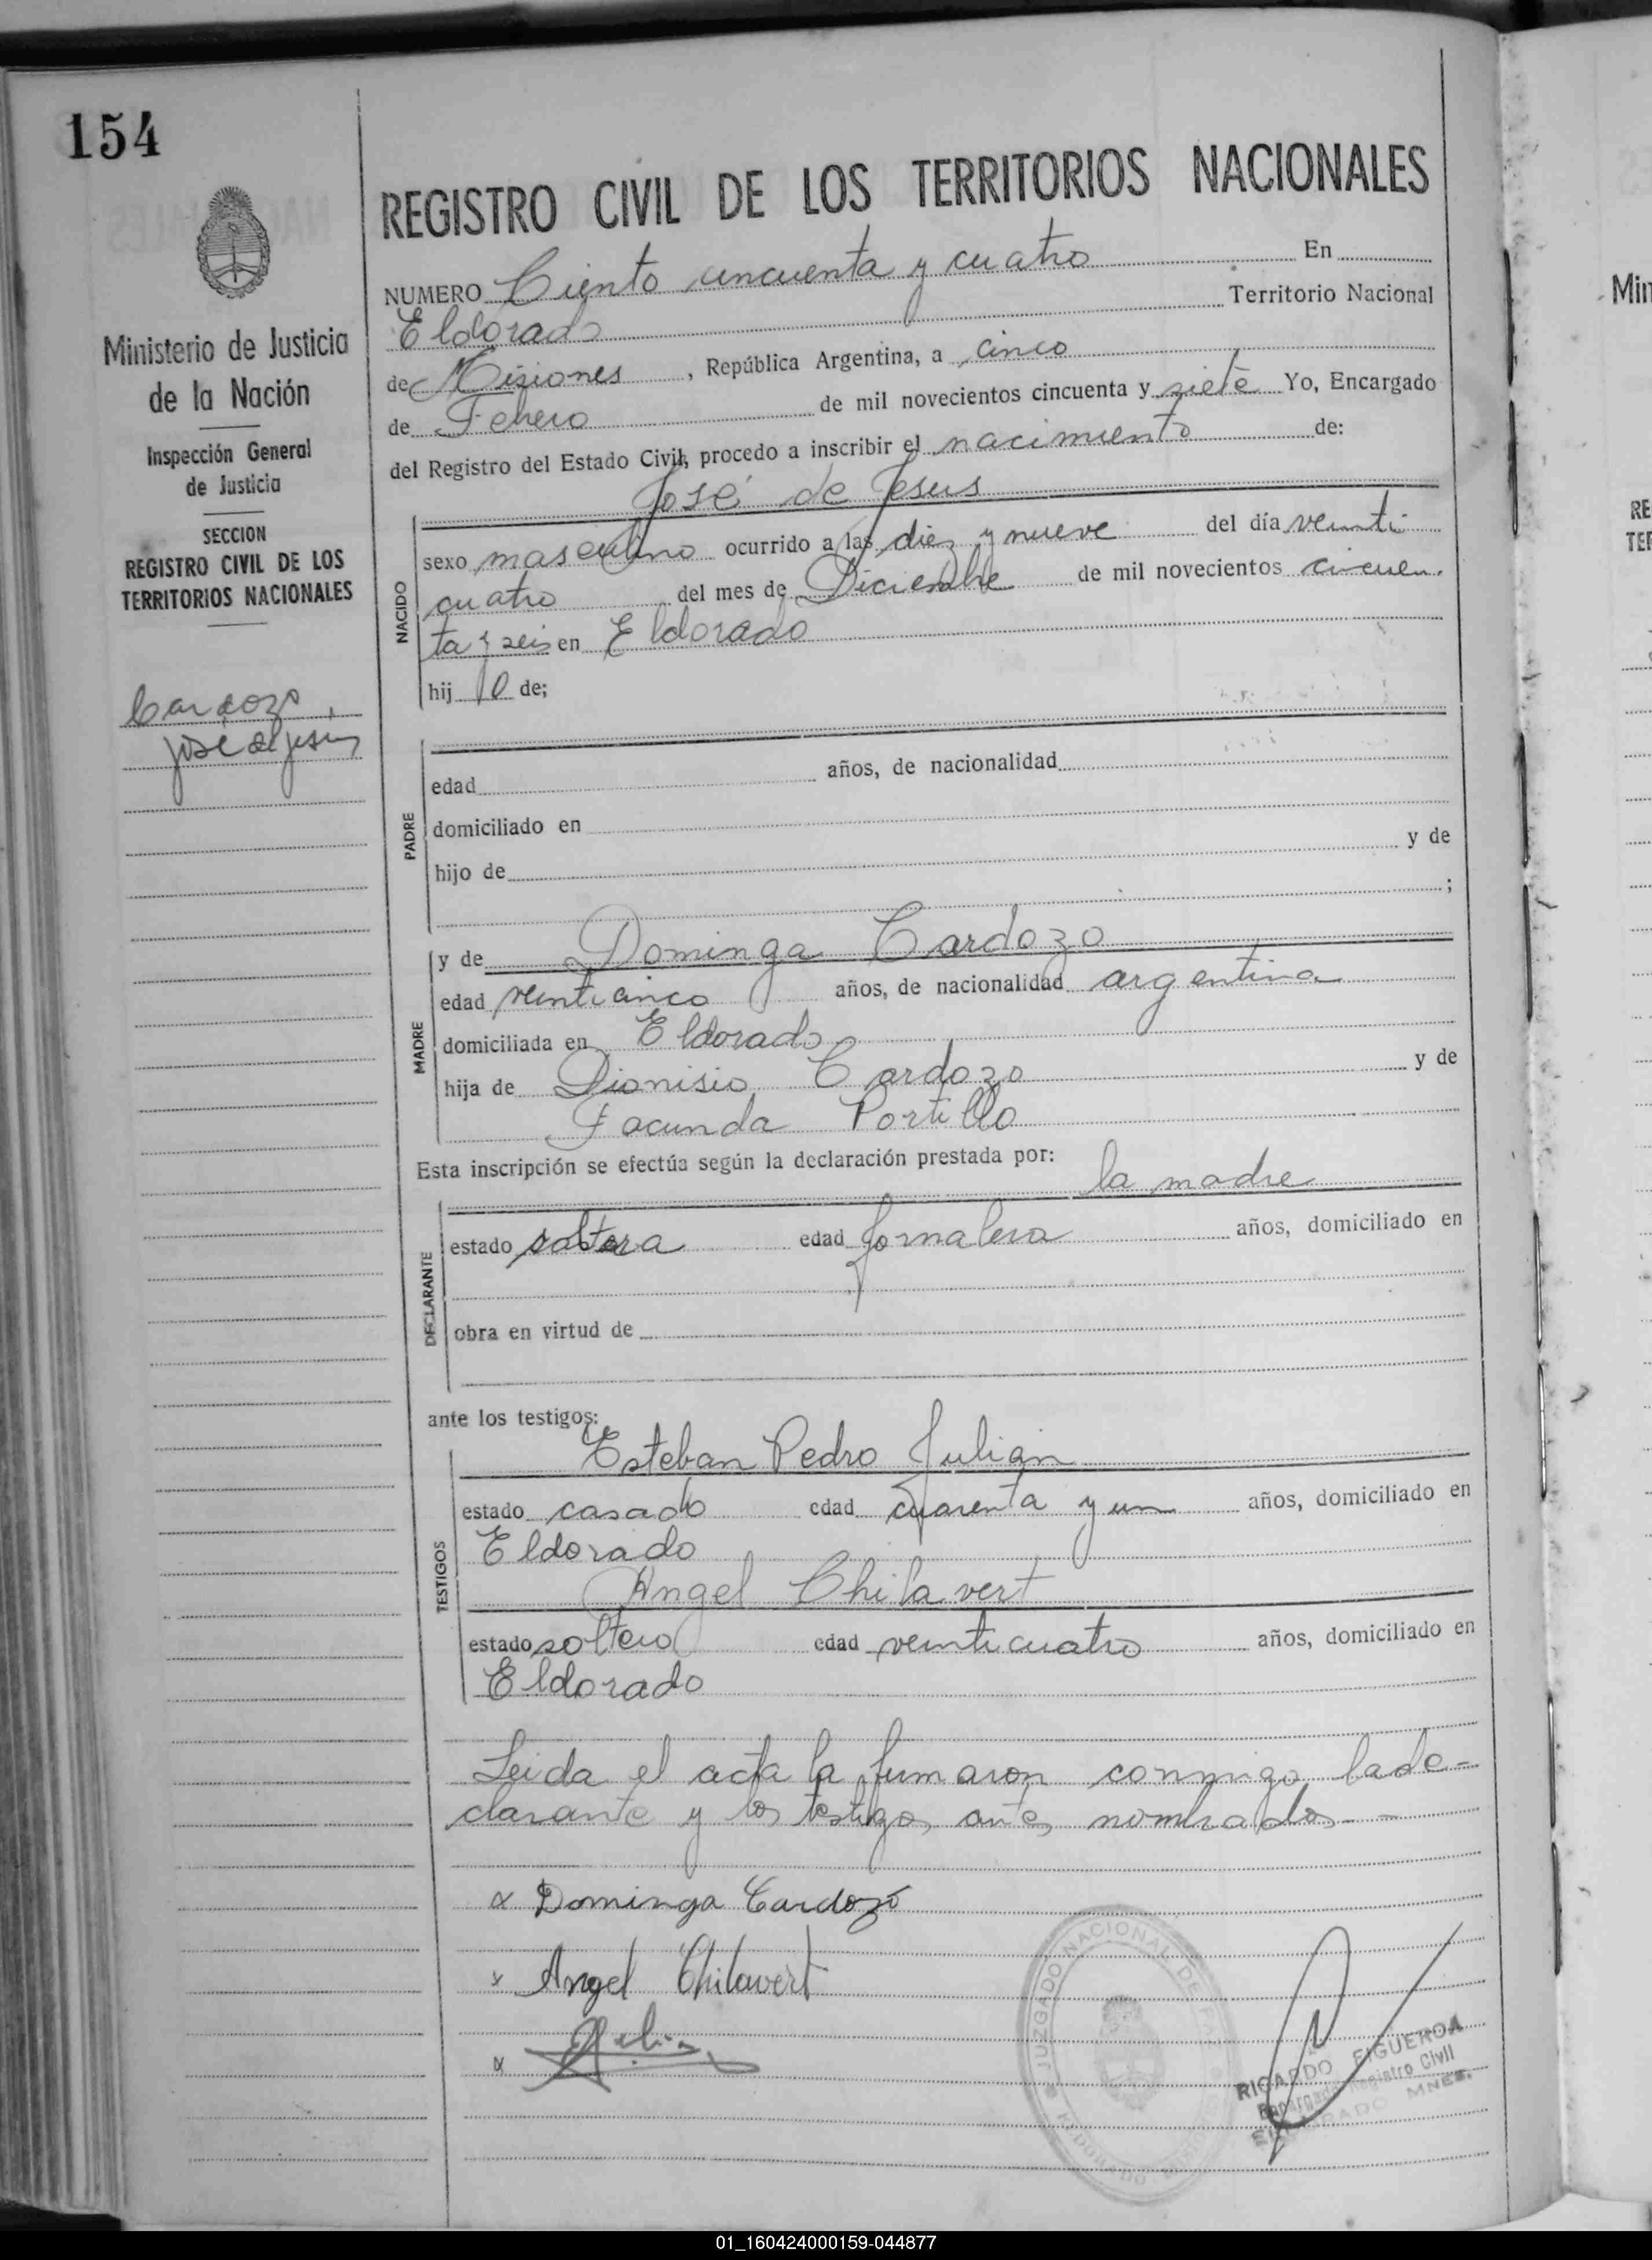 154
REGISTRO CIVIL DE LOS TERRITORIOS NACIONALES
NUMERO Ciento cincuenta y cuatro En
Eldorado Territorio Nacional
de Misiones, República Argentina, a cinco
de Febrero de mil novecientos cincuenta y siete Yo, Encargado
del Registro del Estado Civil, procedo a inscribir el nacimiento de:
José de Jesus
Ministerio de Justicia
de la Nación
Inspección General
de Justicia
SECCION
REGISTRO CIVIL DE LOS
TERRITORIOS NACIONALES
Cardozo,
José de Jesus
NACIDO
sexo masculino ocurrido a las diez y nueve del día veinti
cuatro del mes de Diciembre de mil novecientos cincuen
ta y seis en Eldorado
hij o de;
PADRE
edad años, de nacionalidad
domiciliado en
hijo de y de
;
MADRE
y de Dominga Cardozo
edad veinticinco años, de nacionalidad argentina
domiciliada en Eldorado
hija de Dionisio Cardozo y de
Facunda Portillo
Esta inscripción se efectúa según la declaración prestada por:
la madre
DECLARANTE
estado soltera edad Jornalera años, domiciliado en
obra en virtud de
ante los testigos:
Esteban Pedro Julian
TESTIGOS
estado casado edad cuarenta y un años, domiciliado en
Eldorado
Angel Chilavert
estado soltero edad veinticuatro años, domiciliado en
Eldorado
Leida el acta la firmaron conmigo la de-
clarante y los testigos antes nombrados.-
x Dominga Cardozo
x Angel Chilavert
x
JUZGADO NACIONAL DE PAZ
RICARDO FIGUEROA
Encargado Registro Civil
ELDORADO MNES.
Min
RE
TER
01_160424000159-044877